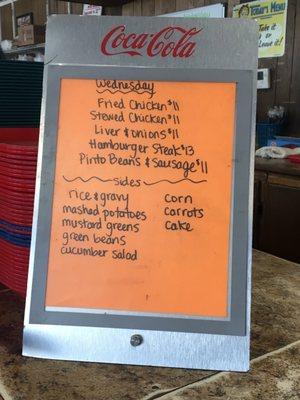 Today's Menu
Take it
or
Leave it
Coca-Cola
Wednesday
Fried Chicken $11
Stewed Chicken $11
Liver & onions $11
Hamburger Steak $13
Pinto Beans & Sausage $11
sides
rice & gravy
mashed potatoes
mustard greens
green beans
cucumber salad
corn
carrots
cake